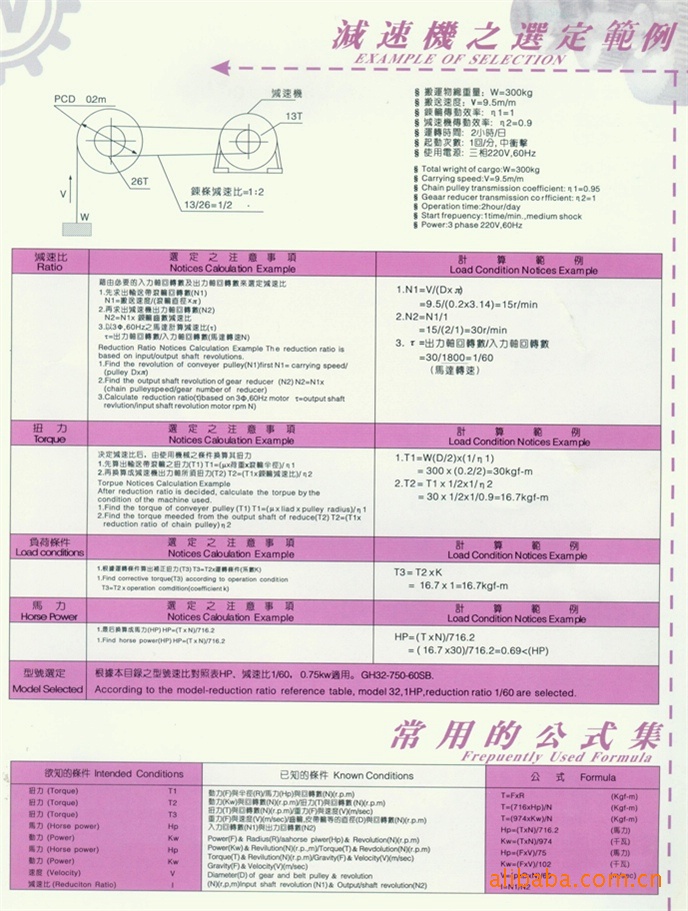 減速機之選定範例
EXAMPLE OF SELECTION
PCD 02m
減速機
13T
26T
鍊條減速比=1:2
13/26=1/2
V
W
§ 搬運物總重量: W=300kg
§ 搬送速度: V=9.5m/m
§ 鍊輪傳動效率: η1=1
§ 減速機傳動效率: η2=0.9
§ 運轉時間: 2小時/日
§ 起動次數: 1回/分, 中衝擊
§ 使用電源: 三相220V,60Hz
§ Total wright of cargo:W=300kg
§ Carrying speed:V=9.5m/m
§ Chain pulley transmission coefficient: η1=0.95
§ Geaar reducer transmission co rfficient: η2=1
§ Operation time:2hour/day
§ Start frepuency:1time/min.,medium shock
§ Power:3 phase 220V,60Hz
減速比
Ratio
選定之注意事項
Notices Calculation Example
計算範例
Load Condition Notices Example
藉由必要的入力軸回轉數及出力軸回轉數來選定減速比
1.先求出輸送帶滾輪回轉數(N1)
N1=搬送速度/(滾輪直徑×π)
2.再求出減速機出力軸回轉數(N2)
N2=N1x 鍊輪齒數減速比
3.以3Φ,60Hz之馬達計算減速比(τ)
τ=出力軸回轉數/入力軸回轉數(馬達轉速N)
Reduction Ratio Notices Calculation Example The reduction ratio is
based on input/output shaft revolutions.
1.Find the revolution of conveyer pulley(N1)first N1= carrying speed/
(pulley Dxπ)
2.Find the output shaft revolution of gear reducer (N2) N2=N1x
(chain pulleyspeed/gear number of reducer)
3.Calculate reduction ratio(τ)based on 3Φ,60Hz motor τ=output shaft
revlution/input shaft revolution motor rpm N)
1.N1=V/(Dxπ)
=9.5/(0.2x3.14)=15r/min
2.N2=N1/1
=15/(2/1)=30r/min
3. τ =出力軸回轉數/入力軸回轉數
=30/1800=1/60
(馬達轉速)
扭力
Torque
選定之注意事項
Notices Calculation Example
計算範例
Load Condition Notices Example
決定減速比后, 由使用機械之條件換算其扭力
1.先算出輸送帶滾輪之扭力(T1) T1=(μx荷重x滾輪半徑)/η1
2.再換算成減速機出力軸所須扭力(T2) T2=(T1x鍊輪減速比)/η2
Torpue Notices Calculation Example
After reduction ratio is decided, calculate the torpue by the
condition of the machine used.
1.Find the torque of conveyer pulley (T1) T1=(μx liad x pulley radius)/η1
2.Find the torque meeded from the output shaft of reduce(T2) T2=(T1x
reduction ratio of chain pulley)η2
1.T1=W(D/2)x(1/η1)
= 300 x (0.2/2)=30kgf-m
2.T2= T1 x 1/2x1/η2
= 30 x 1/2x1/0.9=16.7kgf-m
負荷條件
Load conditions
選定之注意事項
Notices Calculation Example
計算範例
Load Condition Notices Example
1.根據運轉條件算出補正扭力(T3) T3=T2x運轉條件(系數K)
1.Find corrective torque(T3) according to operation condition
T3=T2xoperation comdition(coefficientk)
T3=T2xK
= 16.7x1=16.7kgf-m
馬力
Horse Power
選定之注意事項
Notices Calculation Example
計算範例
Load Condition Notices Example
1.最后換算成馬力(HP) HP=(TxN)/716.2
1.Find horse power(HP) HP=(TxN)/716.2
HP=(TxN)/716.2
= (16.7x30)/716.2=0.69<(HP)
型號選定
Model Selected
根據本目錄之型號速比對照表HP、減速比1/60, 0.75kw適用。GH32-750-60SB.
According to the model-reduction ratio reference table, model 32,1HP,reduction ratio 1/60 are selected.
常用的公式集
Frepuently Used Formula
欲知的條件 Intended Conditions
已知的條件 Known Conditions
公式 Formula
扭力 (Torque) T1
扭力 (Torque) T2
扭力 (Torque) T3
馬力 (Horse power) Hp
動力 (Power) Kw
馬力 (Horse power) Hp
動力 (Power) Kw
速度 (Velocity) V
減速比 (Reduciton Ratio) I
動力(F)與半徑(R)/馬力(Hp)與回轉數(N)(r.p.m)
動力(Kw)與回轉數(N)(r.p.m)/扭力(T)與回轉數(N)(r.p.m)
扭力(T)與回轉數(N)(r.p.m)/重力(F)與速度(V)(m/sec)
重力(F)與速度(V)(m/sec)/齒輪,皮帶輪等的直徑(D)與回轉數(N)(r.p.m)
入力回轉數(N1)與出力回轉數(N2)
Power(F)& Radius(R)/aahorse piwer(Hp)& Revolution(N)(r.p.m)
Power(Kw)& Revilution(N)(r.p..m)/Torque(T)& Revdolution(N)(r.p.m)
Torque(T)& Revilution(N)(r.p.m)/Gravity(F)& Velocity(V)(m/sec)
Gravity(F)& Velocity(V)(m/sec)
Diameter(D)of gear and belt pulley & revolution
(N)(r,p,m)Input shaft revolution (N1)& Output/shaft revolution(N2)
T=FxR (Kgf-m)
T=(716xHp)/N (Kgf-m)
T=(974xKw)/N (Kgf-m)
Hp=(TxN)/716.2 (馬力)
Kw=(TxN)/974 (千瓦)
Hp=(FxV)/75 (馬力)
Kw=(FxV)/102 (千瓦)
V=(pxDxN)/60 (m/sec)
I=N1/N2
alibaba.com.cn